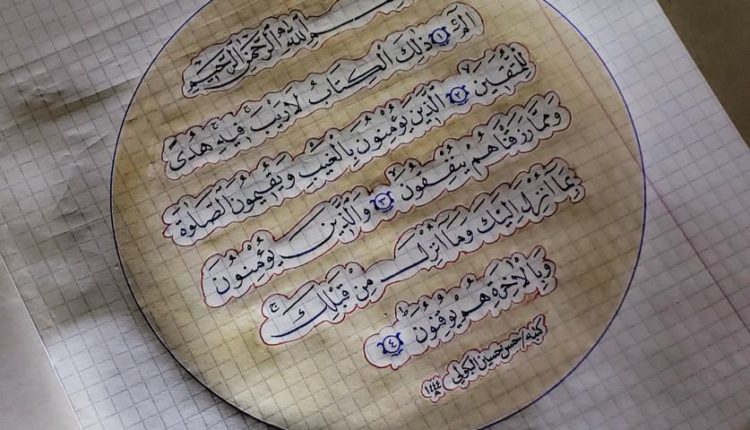 بِسْمِ اللهِ الرَّحْمٰنِ الرَّحِيمِ
الٓمٓ ١ ذٰلِكَ الْكِتَابُ لَارَيْبَ ۛ فِيهِ ۛ هُدًى
لِلْمُتَّقِينَ ٢ الَّذِينَ يُؤْمِنُونَ بِالْغَيْبِ وَيُقِيمُونَ الصَّلٰوةَ
وَمِمَّا رَزَقْنَاهُمْ يُنْفِقُونَ ٣ وَالَّذِينَ يُؤْمِنُونَ
بِمَا أُنْزِلَ إِلَيْكَ وَمَا أُنْزِلَ مِنْ قَبْلِكَ ۚ
وَبِالْاٰخِرَةِ هُمْ يُوقِنُونَ ٤
كتبه/حسن حسين البكولي